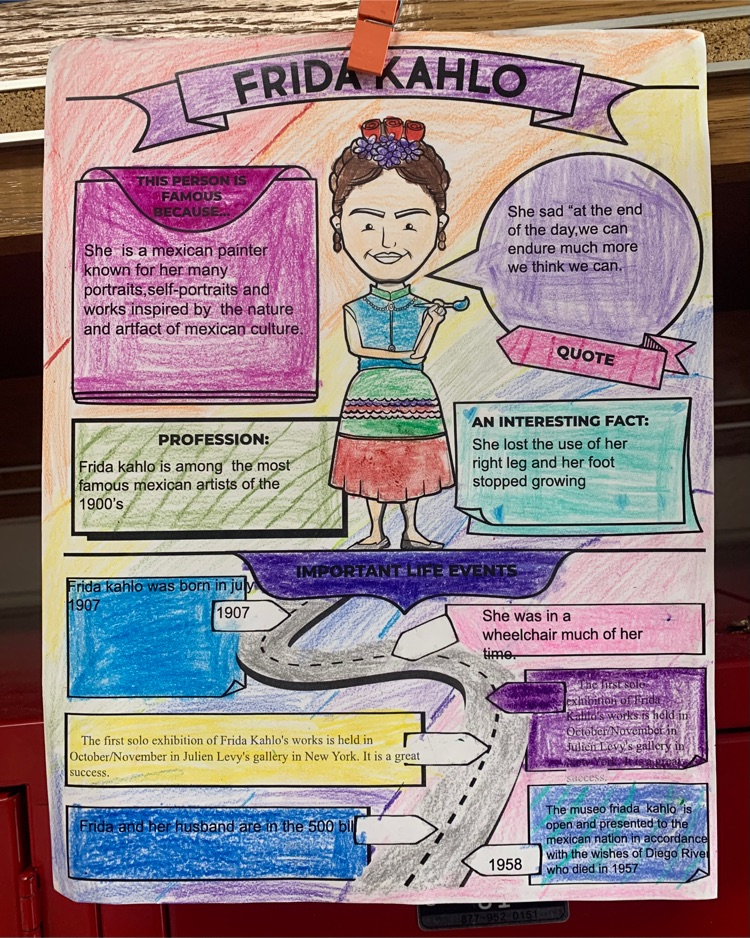 FRIDA KAHLO
THIS PERSON IS
FAMOUS
BECAUSE...
She is a mexican painter
known for her many
portraits,self-portraits and
works inspired by the nature
and artfact of mexican culture.
She sad "at the end
of the day,we can
endure much more
we think we can.
QUOTE
PROFESSION:
Frida kahlo is among the most
famous mexican artists of the
1900's
AN INTERESTING FACT:
She lost the use of her
right leg and her foot
stopped growing
IMPORTANT LIFE EVENTS
Frida kahlo was born in july
1907
1907
She was in a
wheelchair much of her
time.
The first solo
exhibition of Frida
Kahlo's works is held in
October/November in
Julien Levy's gallery in
New York. It is a great
success.
The first solo exhibition of Frida Kahlo's works is held in
October/November in Julien Levy's gallery in New York. It is a great
success.
Frida and her husband are in the 500 bil
The museo friada kahlo is
open and presented to the
mexican nation in accordance
with the wishes of Diego River
who died in 1957
1958
877-952 0151